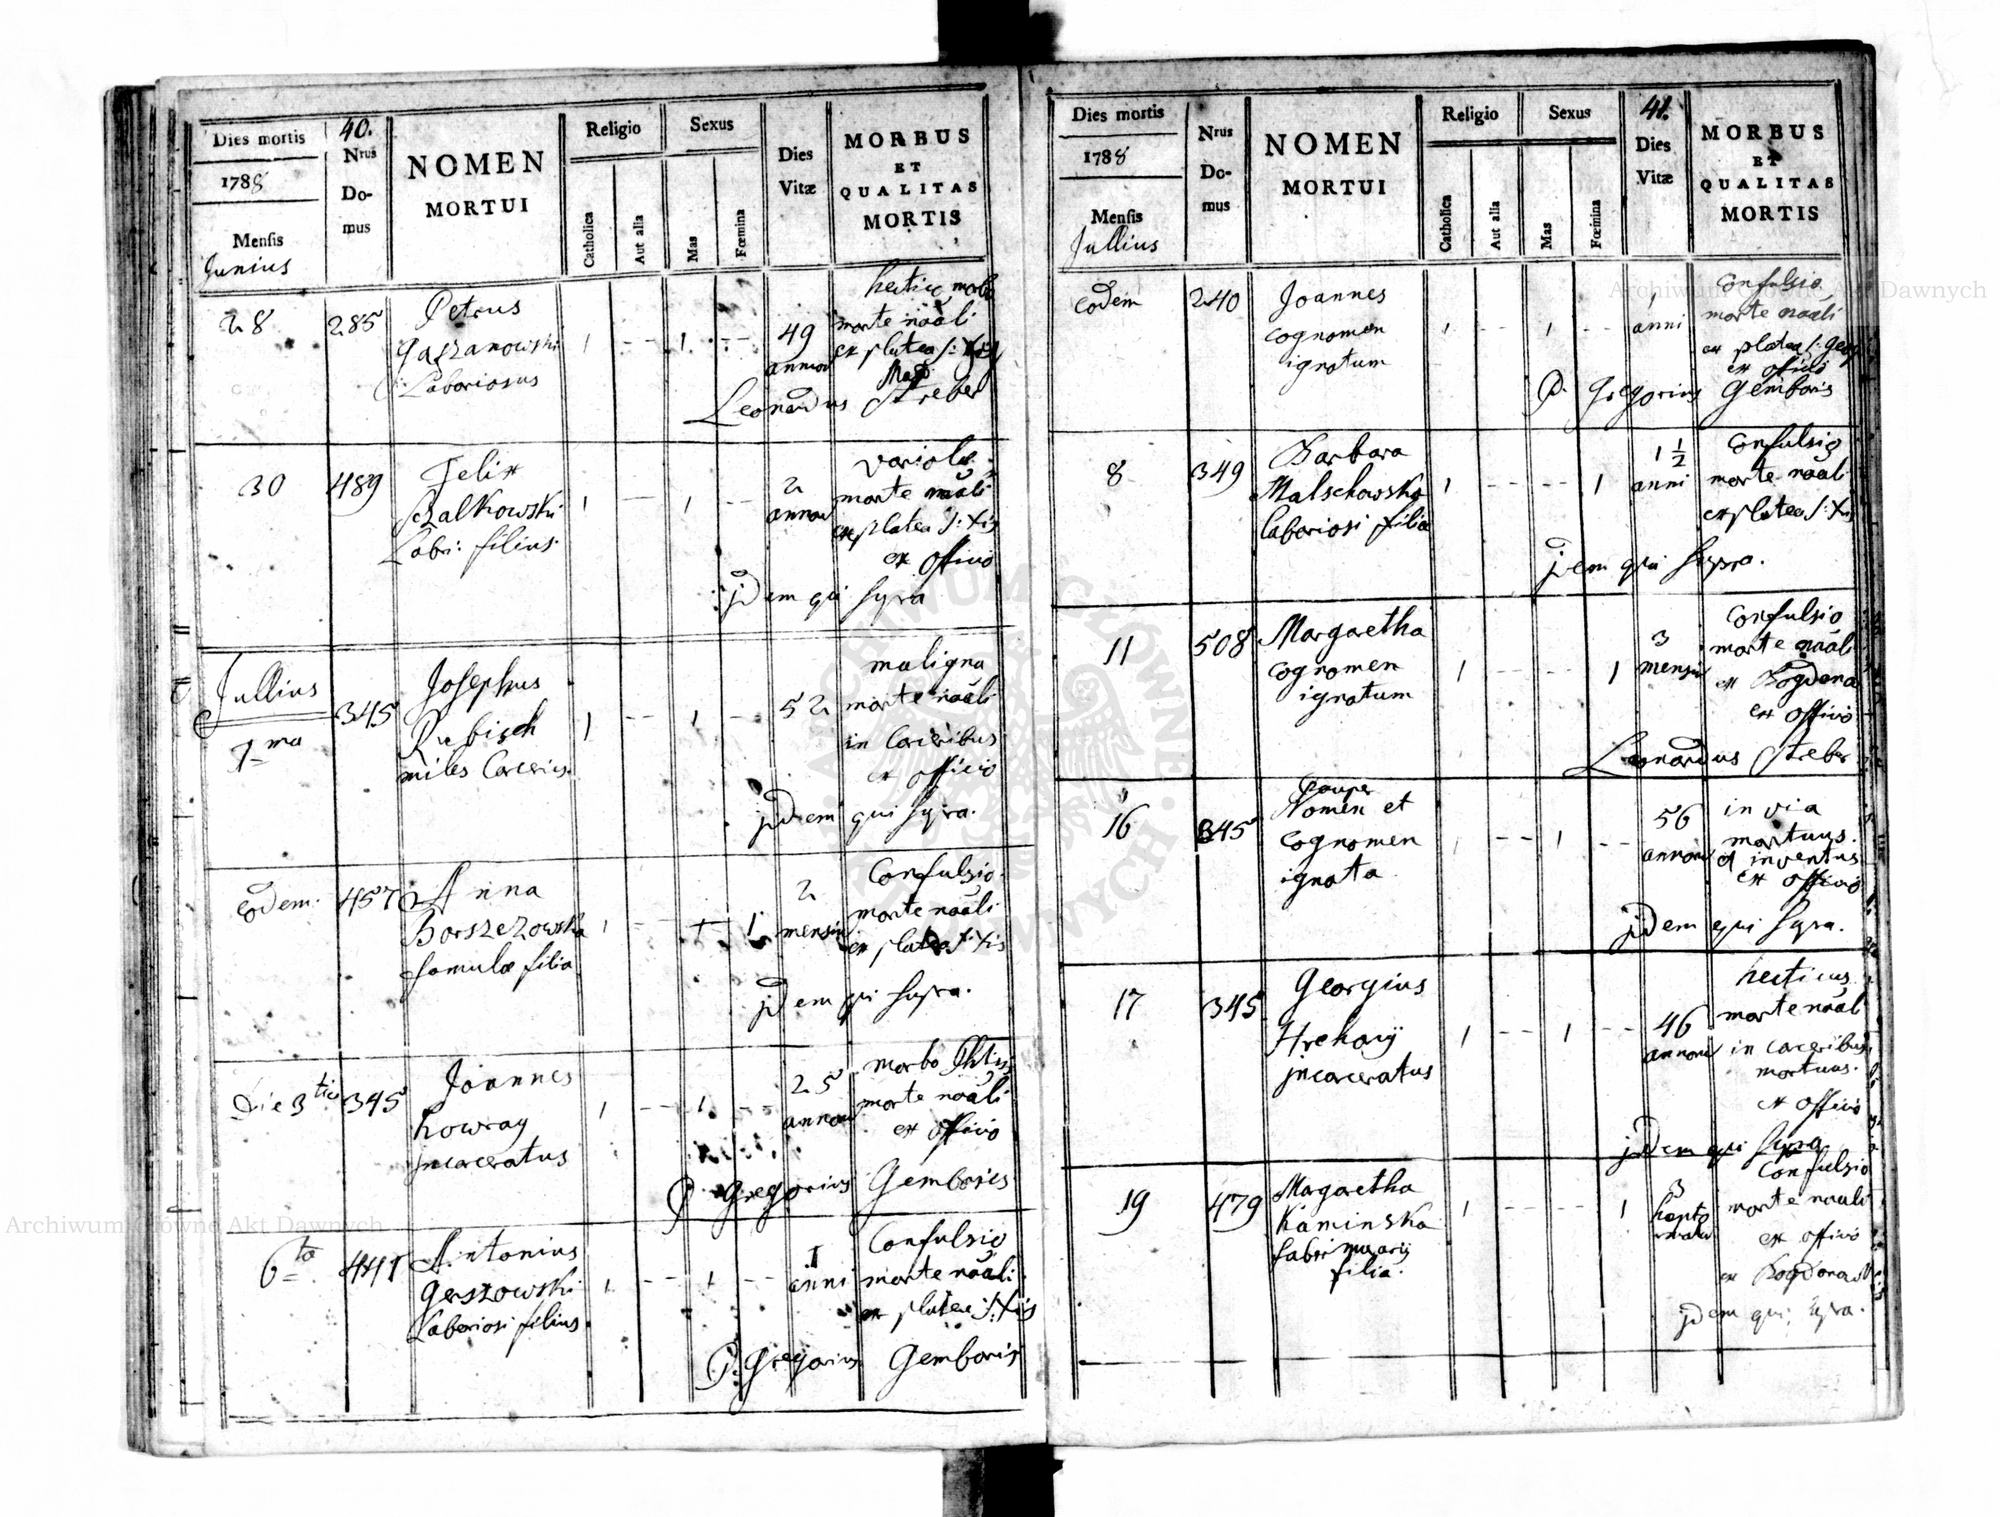 40.
Dies mortis
1788
Mensis
Junius
Nrus
Do-
mus
NOMEN
MORTUI
Religio
Catholica
Aut alia
Sexus
Mas
Fœmina
Dies
Vitæ
MORBUS
ET
QUALITAS
MORTIS
28
285
Petrus
Laboriosus
1 -- 1 --
49
annor
hectico morbo
morte nāāli
ex platea S:
Leonardus Streber
30
489
Felix
Szalkowski
Labri: filius
1 -- 1 --
2
annor
variolæ
morte nāāli
ex platea S: Xis
ex officio
jdem qui supra
Jullius
1ma
345
Josephus
Rubisch
miles Carcerius
1 -- 1 --
52
maligna
morte nāāli
in Carceribus
ex officio
jdem qui supra.
Eodem.
457
Anna
Borszezowska
famulæ filia
1 -- 1
2
mensiu
Confulsio
morte nāāli
ex platea S: Xis
jdem qui supra.
Die 3tia
345
Joannes
Kowray
jncarceratus
1 -- 1 --
25
annor
morbo Phtisis
morte nāāli
ex officio
P. Gregorius Gemboris
6ta
441
Antonius
Gerszowski
Laboriosi filius.
1 -- 1 --
1
anni
Confulsio
morte nāāli
ex platea S: Xis
P. Gregorius Gemboris
41.
Dies mortis
1788
Mensis
Jullius
Nrus
Do-
mus
NOMEN
MORTUI
Religio
Catholica
Aut alia
Sexus
Mas
Fœmina
Dies
Vitæ
MORBUS
ET
QUALITAS
MORTIS
eodem
240
Joannes
cognomen
ignotum
1 -- 1 --
1
anni
Confulsio
morte nāāli
ex platea S: Geor
ex officio
P. Gregorius Gemboris
8
349
Barbara
Malschowska
laboriosi filia
1 -- -- 1
1 1/2
anni
Confulsio
morte nāāli
ex platea S: Xis
jdem qui supra.
11
508
Margaretha
cognomen
ignotum
1 -- -- 1
3
mensiu
Confulsio
morte nāāli
ex Bogdana
ex officio
Leonardus Streber
16
345
Pauper
Nomen et
cognomen
ignota
1 -- 1 --
56
annor
in via
mortuus.
et inventus
ex officio
jdem qui supra.
17
345
Georgius
Hrehory
jncarceratus
1 -- 1 --
46
annor
hecticus
morte nāāli
in carceribus
mortuus.
ex officio
jdem qui supra
19
479
Margaretha
Kaminska
fabri murarij
filia.
1 -- -- 1
3
hepto
madar
Confulsio
morte nāāli
ex officio
ex Bogdana
jdem qui supra.
Archiwum Główne Akt Dawnych
Archiwum Główne Akt Dawnych
ARCHIWUM GŁÓWNE AKT DAWNYCH